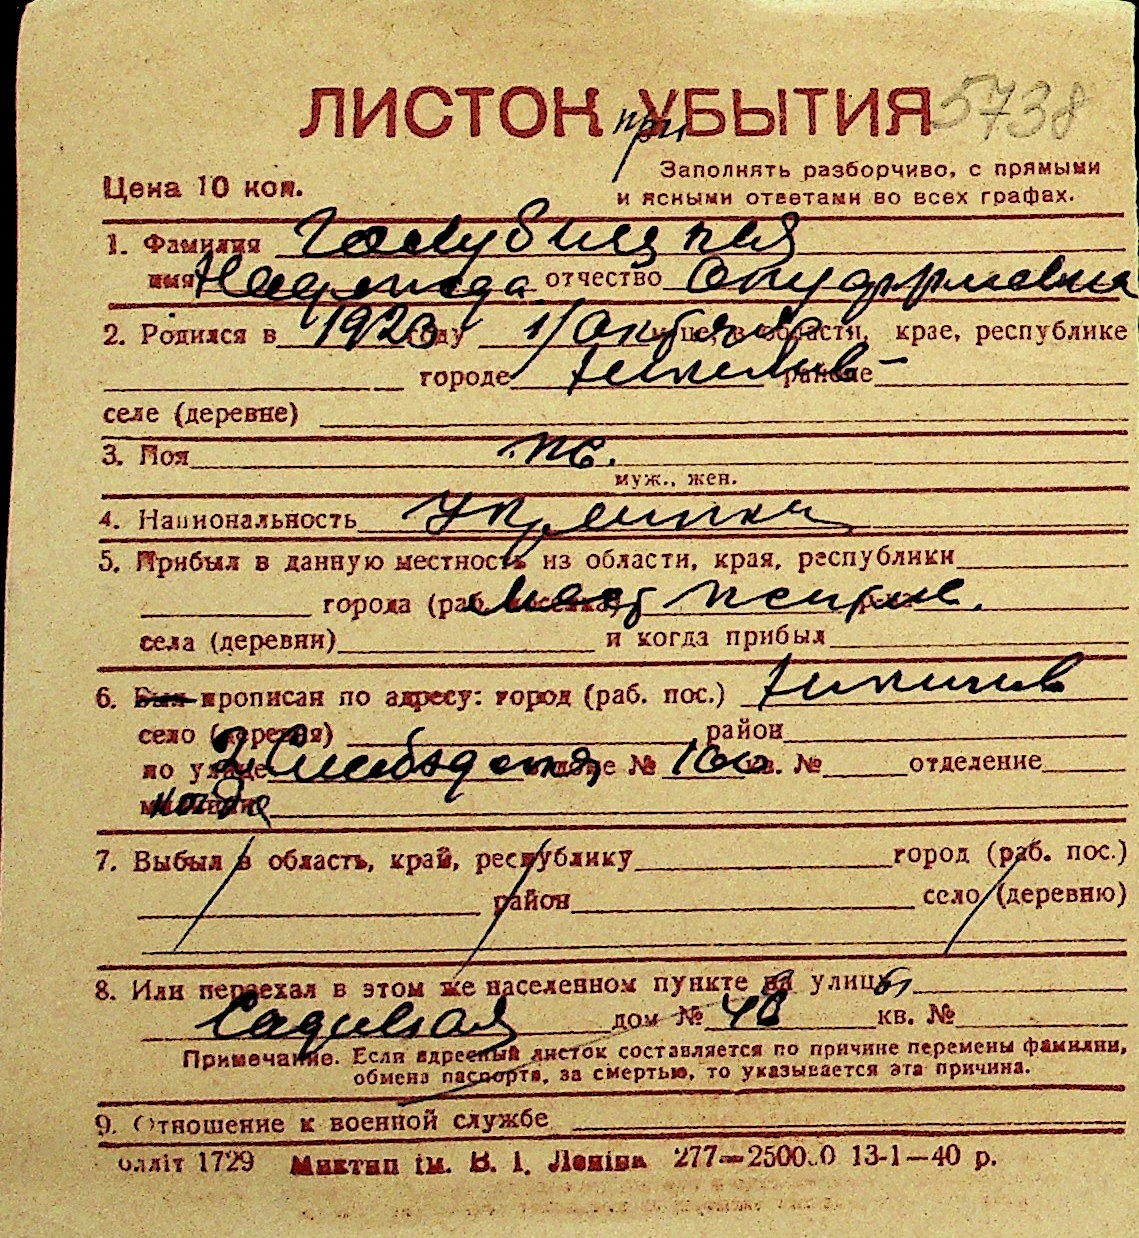 ЛИСТОК при УБЫТИЯ 5738
Цена 10 коп.
Заполнять разборчиво, с прямыми
и ясными ответами во всех графах.
1. Фамилия Голубицкая
имя Надежда отчество Онуфриевна
2. Родился в 1923 году 1/октября области, крае, республике
городе районе
селе (деревне)
3. Пол ж.
муж., жен.
4. Национальность Украинка
5. Прибыл в данную местность из области, края, республики
города (раб. поселка)
села (деревни) и когда прибыл
6. Был прописан по адресу: город (раб. пос.)
село (деревня) район
по улице доме № 100 кв. № отделение
милиции
7. Выбыл в область, край, республику город (раб. пос.)
район село (деревню)
8. Или переехал в этом же населенном пункте на улицы
Садовая дом № 48 кв. №
Примечание. Если адресный листок составляется по причине перемены фамилии,
обмена паспорта, за смертью, то указывается эта причина.
9. Отношение к военной службе
олліт 1729 Миктип ім. В. І. Леніна 277—2500.0 13-1—40 р.